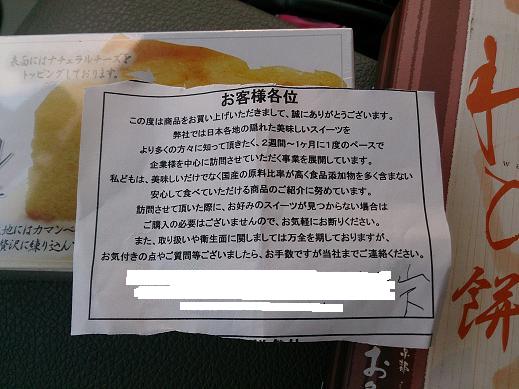 表面にはナチュラルチーズを
トッピングしております。
お客様各位
この度は商品をお買い上げいただきまして、誠にありがとうございます。
弊社では日本各地の隠れた美味しいスイーツを
より多くの方々に知って頂きたく、2週間～1ヶ月に1度のペースで
企業様を中心に訪問させていただく事業を展開しています。
私どもは、美味しいだけでなく国産の原料比率が高く食品添加物を多く含まない
安心して食べていただける商品のご紹介に努めています。
訪問させて頂いた際に、お好みのスイーツが見つからない場合は
ご購入の必要はございませんので、お気軽にお断りください。
また、取り扱いや衛生面に関しましては万全を期しておりますが、
お気付きの点やご質問等ございましたら、お手数ですが当社までご連絡ください。
地にはカマンベ
贅沢に練り込んで
餅